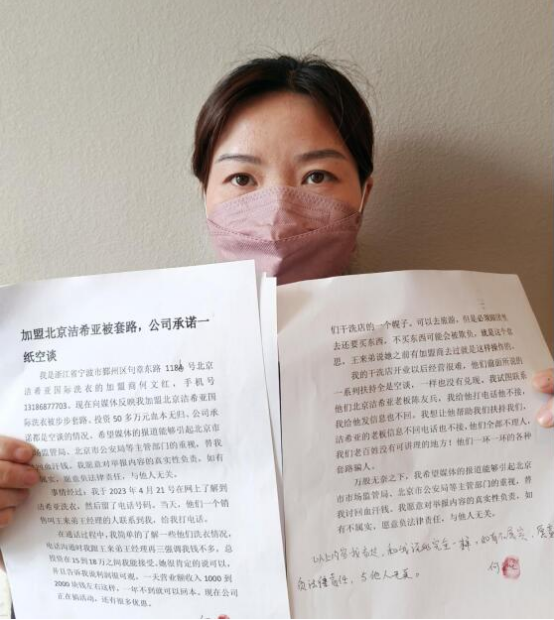 加盟北京洁希亚被套路，公司承诺一
纸空谈
我是浙江省宁波市鄞州区句章东路 1184 号北京
洁希亚国际洗衣的加盟商何文红，手机号
13186877703。现在向媒体反映我加盟北京洁希亚国
际洗衣被步步套路，投资 50 多万元血本无归。公司承
诺都是空谈的情况。希望媒体的报道能够引起北京市
市场监管局、北京市公安局等主管部门的重视，替我
讨回血汗钱。我愿意对举报内容的真实性负责，如有
不属实，愿意负法律责任，与他人无关。
事情经过，我于 2023 年 4 月 21 号在网上了解到
洁希亚洗衣，然后留了电话号码。当天，他们一个销
售叫王来弟王经理的人联系到我，给我打电话。
在通话过程中，我简单的了解一些他们洗衣情况，
电话沟通时我跟王来弟王经理再三强调我钱不多，总
投资在 15 到 18 万之间我能接受，她很肯定的说可以，
并且告诉我盈利润很可观，一天营业额收入 1000 到
2000 块钱左右这样，一年不到就可以回本。现在公司
正在搞活动，还有很多优惠。
们干洗店的一个幌子，可以去旅游，但是必须跟团里
去还要买东西，不买东西可能会被欺负，就是这个意
思，王来弟说她之前有加盟商去过就是这样操作的。
我的干洗店开业以后经营很难，他们前面所说的
一系列扶持全是空谈，一样也没有兑现，我试图联系
他们北京洁希亚老板陈友兵，我给他打电话他不接，
我给他发信息也不回，我想让他帮助我们扶持我们，
洁希亚的老板信息不回电话也不接，他们全都不理人，
我们老百姓没有可讲理的地方！他们一环一环的各种
套路骗人。
万般无奈之下，我希望媒体的报道能够引起北京
市市场监管局、北京市公安局等主管部门的重视，替
我讨回血汗钱。我愿意对举报内容的真实性负责，如
有不属实，愿意负法律责任，与他人无关。
以上内容我看过，和我说的完全一样，如有不属实，愿意
负法律责任，与他人无关。
何